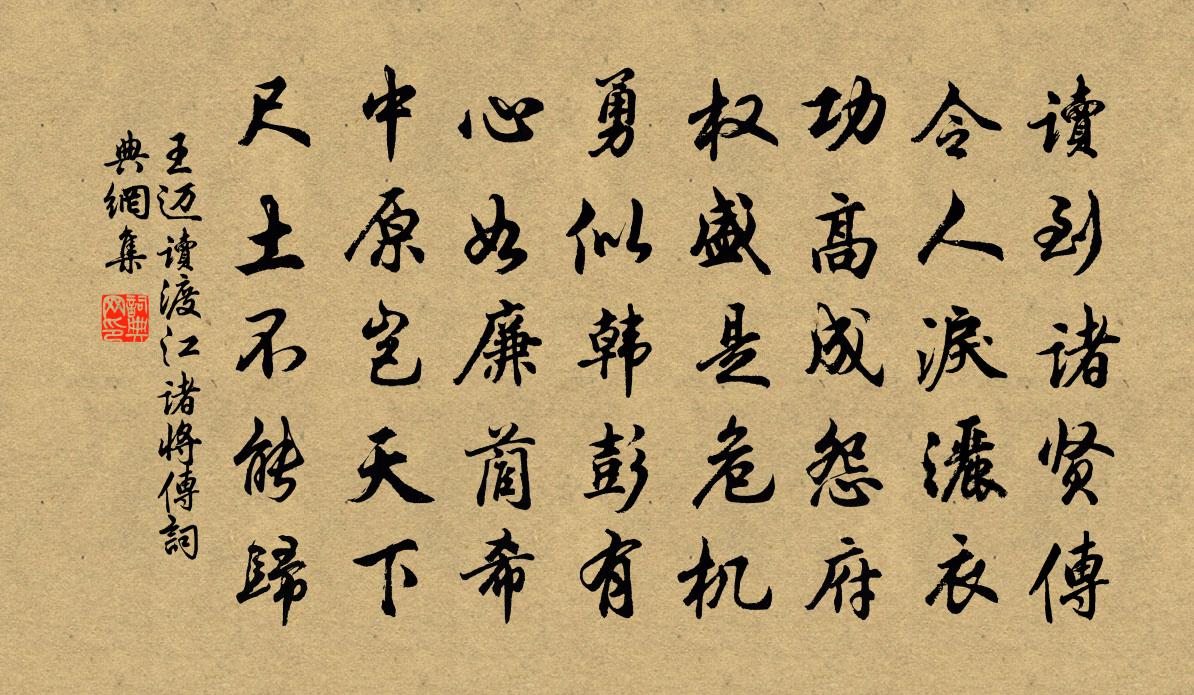 讀到诸贤傳
令人淚灑衣
功高成怨府
权盛是危机
勇似韩彭有
心如廉蔺希
中原岂天下
尺土不能歸
王迈读渡江诸将傳詞
典網集
詞典网印